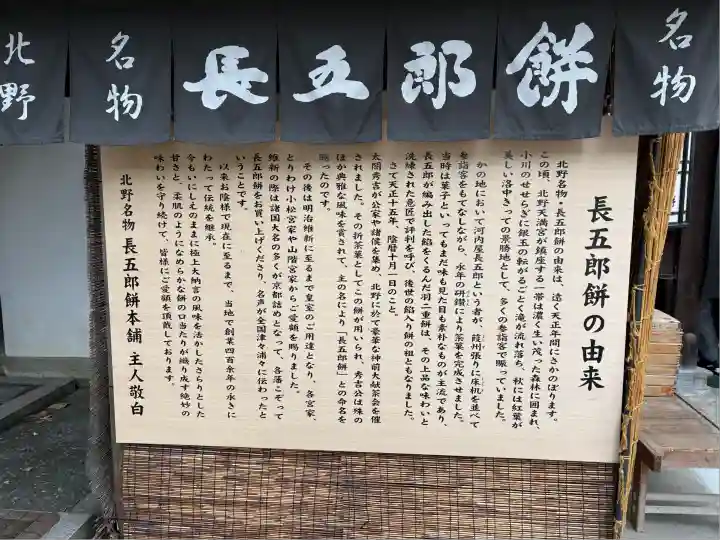 北野
名物
長五郎餅
名物
長五郎餅の由来
北野名物・長五郎餅の由来は、遠く天正年間にさかのぼります。
この頃、北野天満宮が鎮座する一帯は濃く生い茂った森林に囲まれ、
小川のせせらぎに銀玉の転がるごとく滝が流れ落ち、秋には紅葉が
美しい洛中きっての景勝地として、多くの参詣客で賑っていました。
かの地において河内屋長五郎という者が、葭州張りに床机を並べて
参詣客をもてなしながら、永年の研鑽により茶菓を完成させました。
当時は菓子といってもまだ味も見た目も素朴なものが主流であり、
長五郎が編み出した餡をくるんだ羽二重餅は、その上品な味わいと
洗練された意匠で評判を呼び、後世の餡入り餅の祖ともなりました。
さて天正十五年、陰暦十月一日のこと。
太閤秀吉が公家や諸侯を集め、北野に於て豪華な神前大献茶会を催
されました。その折茶菓としてこの餅が用いられ、秀吉公は殊の
ほか典雅な風味を賞されて、主の名により「長五郎餅」との命名を
賜ったのです。
その後は明治維新に至るまで皇室のご用達となり、各宮家、
とりわけ小松宮家や山階宮家からご愛顧を賜りました。
維新の際は諸国大名の多くが京都詰めとなって、各藩こぞって
長五郎餅をお買い上げくださり、名声が全国津々浦々に伝わったと
いうことです。
以来お陰様で現在に至るまで、当地で創業四百余年の永きに
わたって伝統を継承。
今もいにしえのままに極上大納言の風味を活かしたさらりとした
甘さと、柔肌のようになめらかな餅の口当たりが織り成す絶妙の
味わいを守り続けて、皆様にご愛顧を頂戴しております。
北野名物 長五郎餅本舗 主人敬白